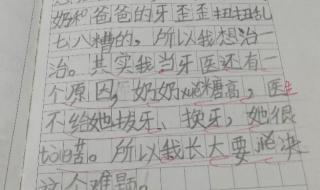 奶和爸爸的牙歪歪扭扭乱
七八糟的，所以我想治一
治。其实我当牙医还有一
个原因，奶奶血糖高，医生
不给她拔牙、换牙，她很
苦。所以我长大要决
这个难题。